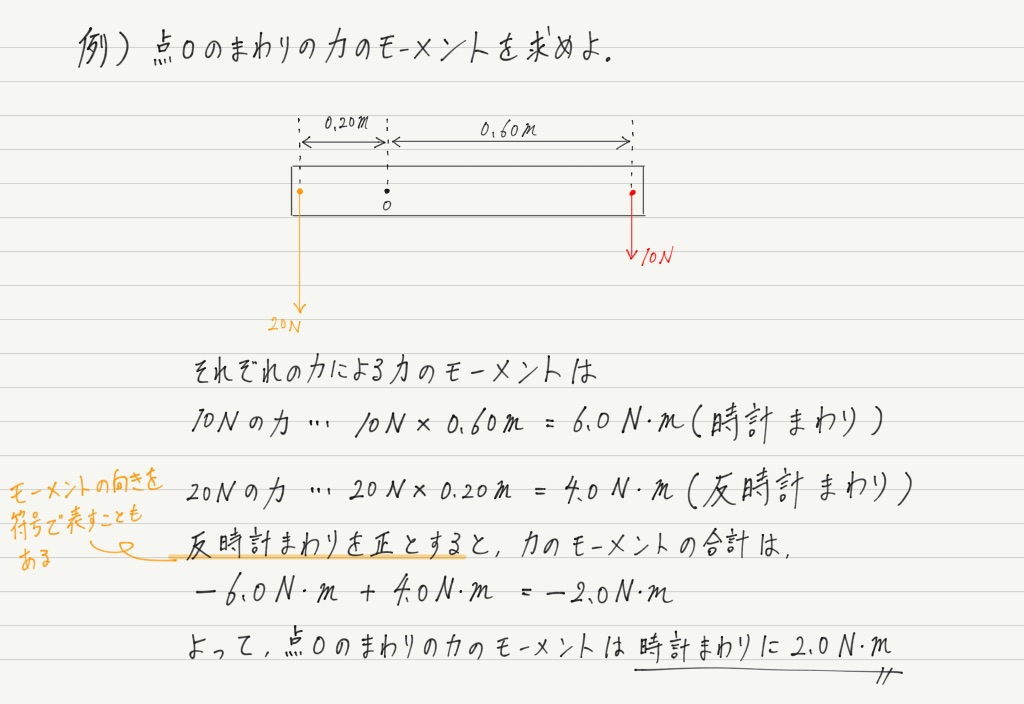 例) 点Oのまわりの力のモーメントを求めよ.
0.20m
0.60m
O
10N
20N
それぞれの力による力のモーメントは
10Nの力 … 10N × 0.60m = 6.0 N・m (時計まわり)
20Nの力 … 20N × 0.20m = 4.0 N・m (反時計まわり)
モーメントの向きを
符号で表すことも
ある
反時計まわりを正とすると, 力のモーメントの合計は,
-6.0N・m + 4.0N・m = -2.0N・m
よって, 点Oのまわりの力のモーメントは 時計まわりに 2.0 N・m